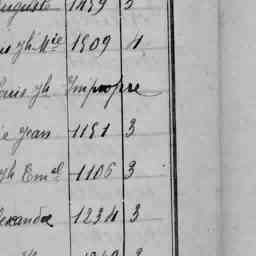 Auguste 1459 3
Jh Mie 1509 4
Louis Jh Impropre
Jean 1151 3
Jh Emel 1106 3
Alexandre 1234 3